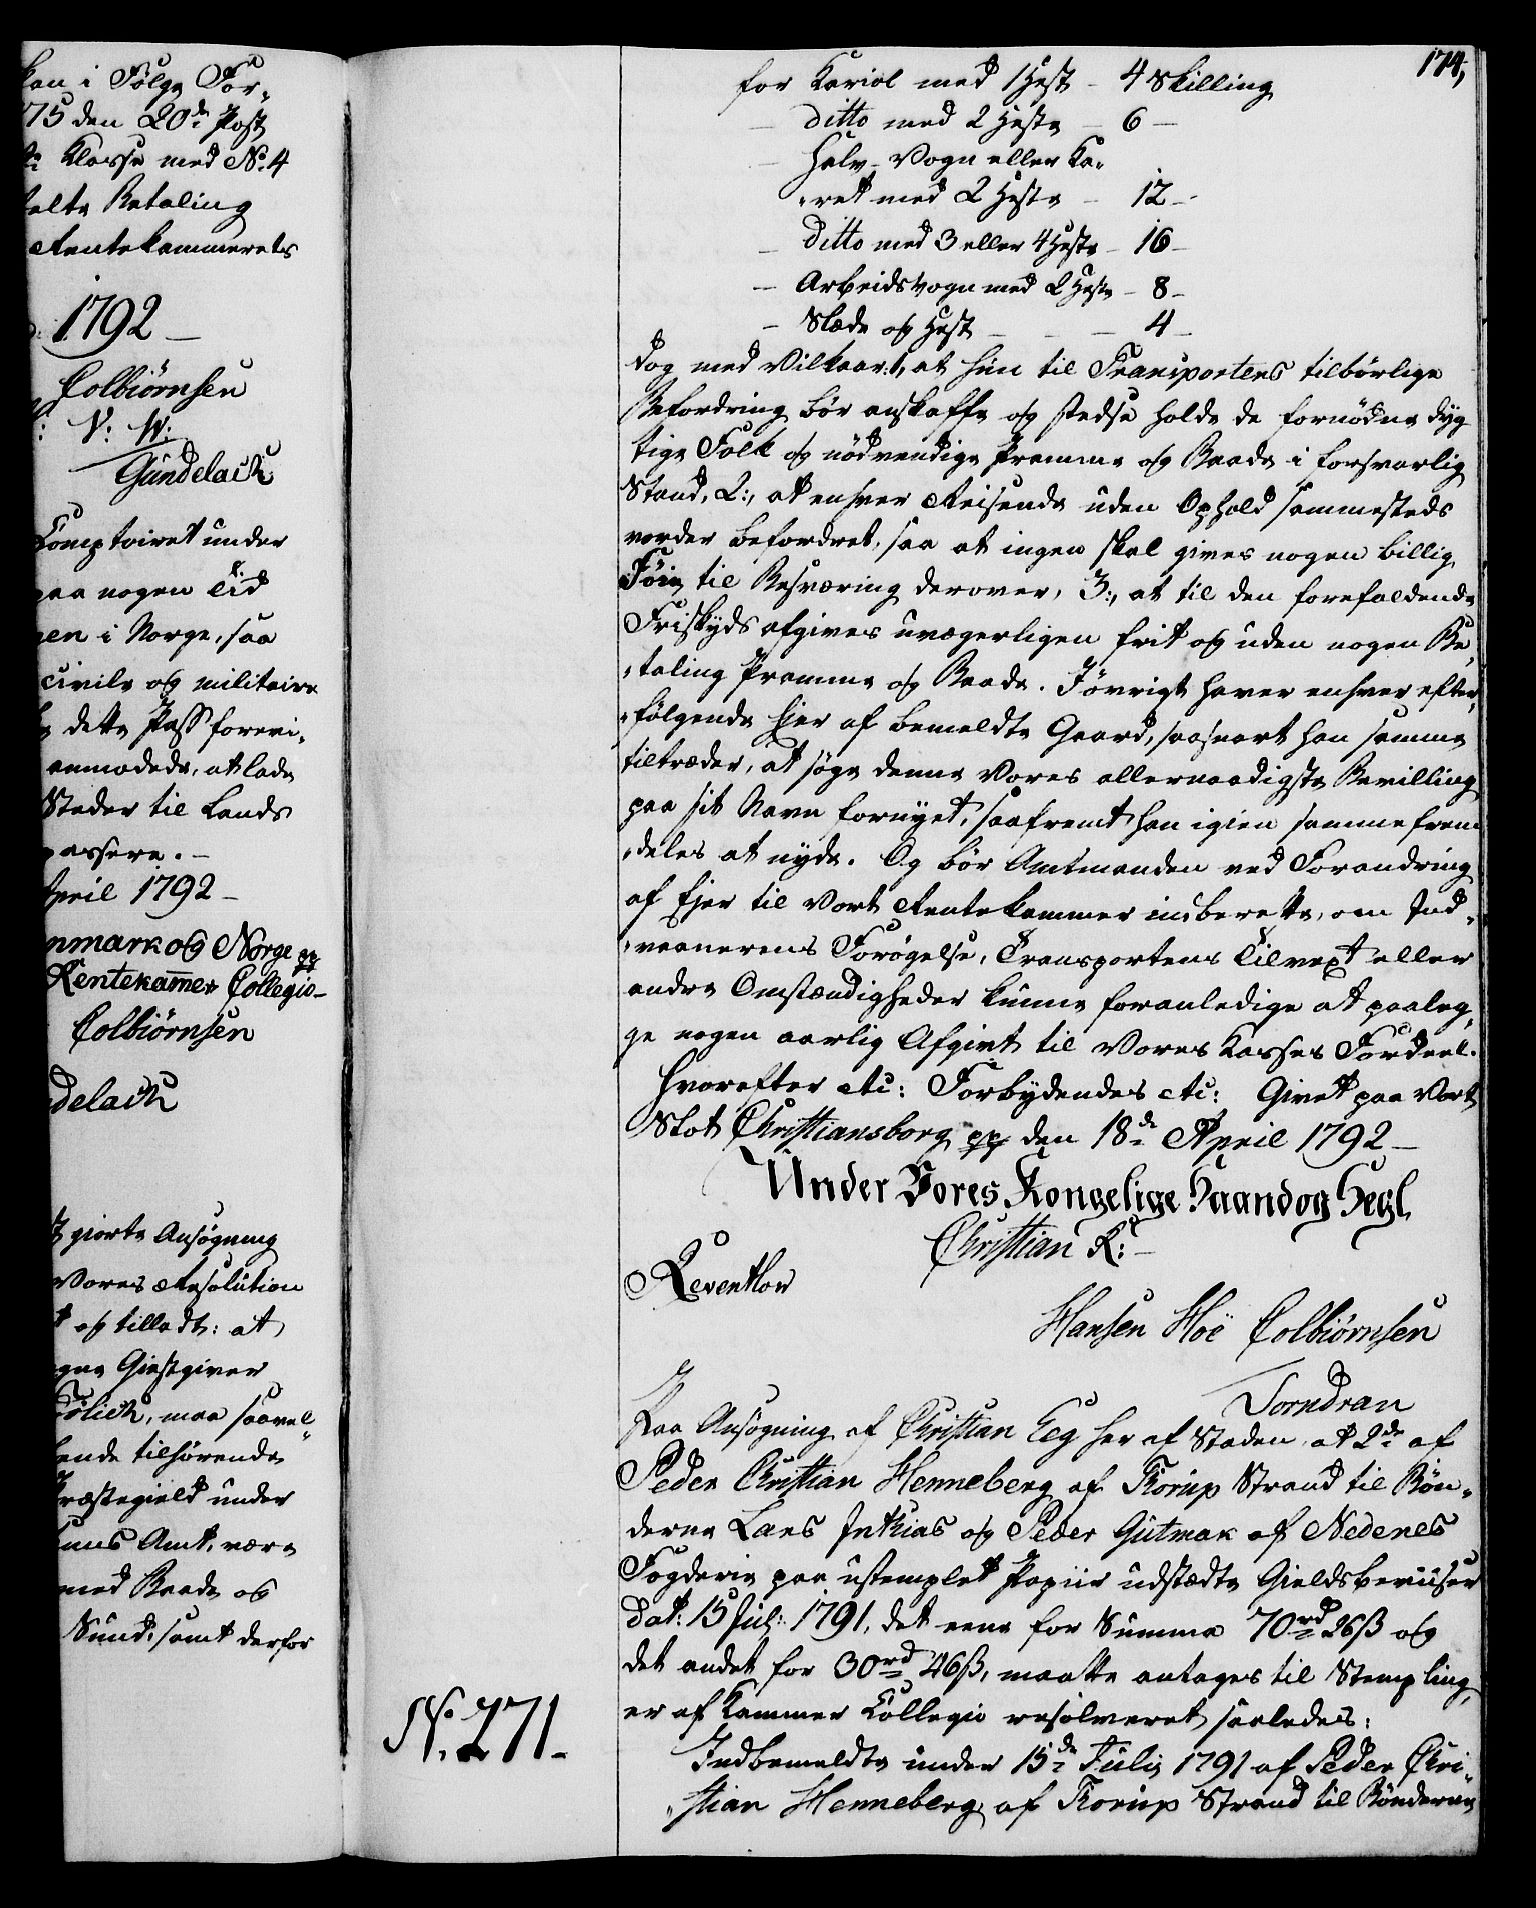 kan i Følge For-
75 den 20de Post
Klasse med No. 4
talte Betaling
Rentekammerets
1792 —
Colbiørnsen
V: W:
Gundelach
Comptoiret under
paa nogen Tid
gen i Norge, saa
civile og militaire
dette Pass forevi-
anmodede, at lade
Steder til Lands
passere. —
April 1792 —
nmark og Norge pp
Rentekamer Collegio —
Colbiørnsen
delach
giorte Ansøgning
Vores Resolution
og tilladt: at
Giestgiver
maa saavel
ende tilhørende
Præstegield under
huus Amt, være
med Baade og
Sund, samt derfor
174,
for Kariol med 1 Hest — 4 Skilling
— ditto med 2 Heste — 6 —
— Halv-Vogn eller Ka-
-ret med 2 Heste — 12 —
— ditto med 3 eller 4 Heste — 16 —
— Arbeidsvogn med 2 Heste — 8 —
— Slæde og Hest — — — 4 —
dog med Vilkaar: 1, at hun til Transportens tilbørlige
Befordring bør anskaffe og stedse holde de fornødne dyg
tige Folk og nødvendige Pramme og Baade i forsvarlig
Stand, 2:, at enhver Reisende uden Ophold sammesteds
vorder befordret, saa at ingen skal gives nogen billig
Føie til Besværing derover, 3:, at til den forefaldende
Friskyds afgives uvægerligen frit og uden nogen Be-
-taling Pramme og Baade. Iøvrigt haver enhver efter-
-følgende Ejer af bemeldte Gaard, saasnart han samme
tiltræder, at søge denne Vores allernaadigste Bevilling
paa sit Navn fornyet, saafremt han igien samme frem
-deles at nyde. Og bør Amtmanden ved Forandring
af Ejer til Vort Rentekammer indberette, om Ind-
-vaanernes Forøgelse, Transportens Tilvext eller
andre Omstændigheder kunne foranledige at paaleg-
ge nogen aarlig Afgivt til Vores Kasses Fordeel.
Hvorefter etc: Forbydendes etc: Givet paa Vort
Slot Christiansborg pp den 18de April 1792 —
Under Vores Kongelige Haand og Segl.
Christian R: —
Reventlow
Hansen Hoë Colbiørnsen
Torndran
Paa Ansøgning af Christian Eeg her af Staden, at 2de af
Peder Christian Henneberg af Torup Strand til Bøn-
derne Lars og Peder Gutmak af Nedenes
Fogderie paa ustemplet Papiir udstædte Gieldsbeviiser
dat: 15 Jul: 1791, det eene for Summa 70rd 26ß og
det andet for 30rd 46ß, maatte antages til Stempling,
er af Kammer Collegio resolveret saaledes:
No. 271.
Indbemeldte under 15de Julii 1791 af Peder Chri-
-stian Henneberg af Torup Strand til Bønderne